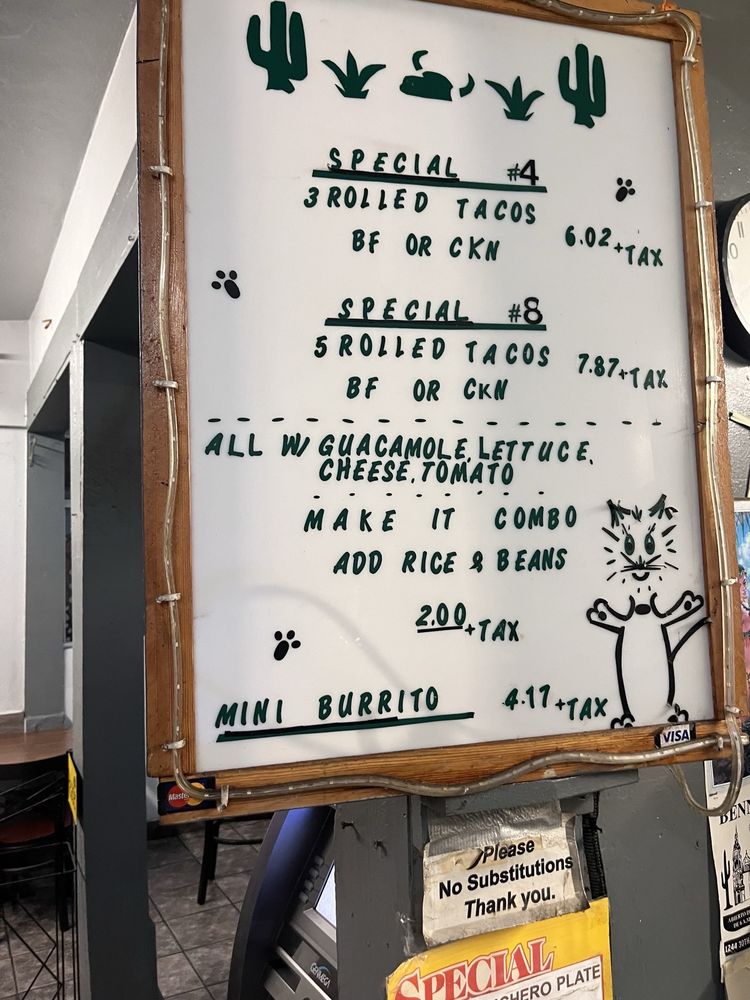 SPECIAL #4
3 ROLLED TACOS
BF OR CKN
6.02 + TAX
SPECIAL #8
5 ROLLED TACOS
BF OR CKN
7.87 + TAX
ALL W/ GUACAMOLE, LETTUCE,
CHEESE, TOMATO
MAKE IT COMBO
ADD RICE & BEANS
2.00 + TAX
MINI BURRITO 4.17 + TAX
VISA
Please
No Substitutions
Thank you.
SPECIAL
PLATE